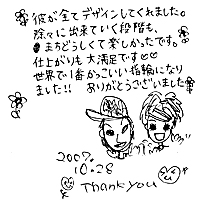 彼が全てデザインしてくれました。
徐々に出来ていく段階も、
まちどうしくて楽しかったです。
仕上がりも大満足です♡♡
世界で1番かっこいい指輪になり
ました!! ありがとうございました
2007.
10.28
Thank you